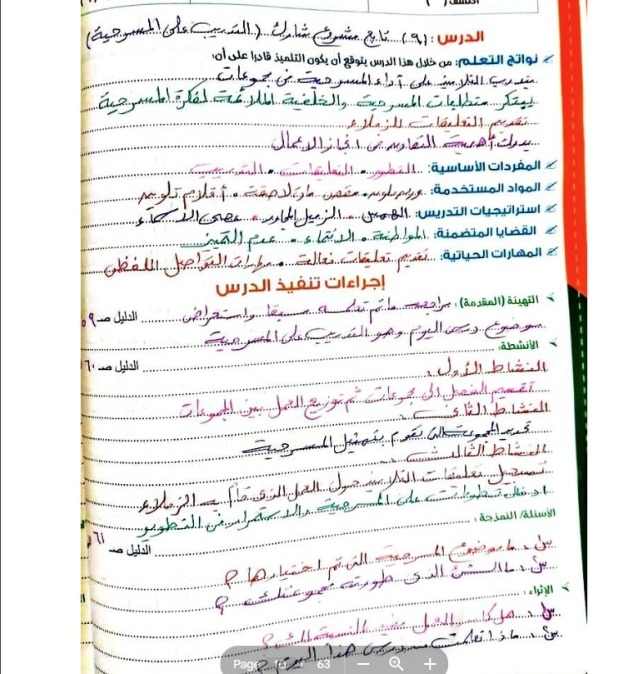 الدرس : (٩) تابع مشروع شارك (التدريب على المسرحية)
نواتج التعلم: من خلال هذا الدرس يتوقع أن يكون التلميذ قادرا على أن:
يتدرب التلاميذ على أداء المسرحية في مجموعات
يبتكر متطلبات المسرحية والخلفية الملائمة لفكرة المسرحية
تقديم التعليقات للزملاء
يدرك أهمية التعاون في إنجاز الأعمال
المفردات الأساسية: التطور . التعليقات . التدريب
المواد المستخدمة: ورسم بلوه . مقص . مادة لاصقة . أقلام تلوين
استراتيجيات التدريس: الهمس . الزميل المجاور . عصى الأسماء
القضايا المتضمنة: المواطنة . الانتماء . عدم التمييز
المهارات الحياتية: تقديم تعليقات فعالة . مهارات التواصل اللفظي
إجراءات تنفيذ الدرس
التهيئة (المقدمة): مراجعة ما تم تعلمه مسبقا واستعراض
الدليل صـ ٥٩
موضوع درس اليوم وهو التدريب على المسرحية
الأنشطة:
الدليل صـ ٦٠
النشاط الأول :
تقسيم الفصل إلى مجموعات ثم توزيع العمل بين المجموعات
النشاط الثاني :
تحديد المجموعة التي تقوم بتمثيل المسرحية
النشاط الثالث :
تسجيل تعليقات التلاميذ حول العمل الذي قام به الزملاء
ادخال تطورات على المسرحية والاستمرار في التطوير
الأسئلة/ النمذجة :
الدليل صـ ٦١
س١ : ما موضوع المسرحية التي تم اختيارها ؟
س٢ : ما الشئ الذي طورته مجموعتك ؟
الإثراء :
س١ : هل كان العمل مفيد بالنسبة لك ؟
س٢ : ماذا تعلمت من درس هذا اليوم ؟
Page 10 / 63